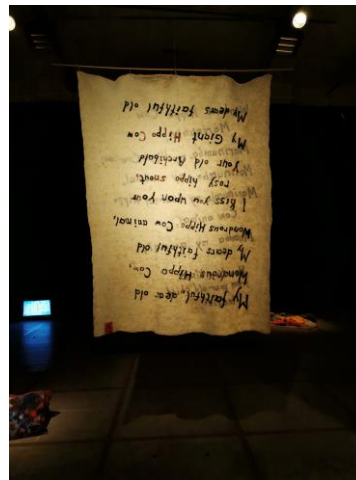 My faithful, dear old
Wondrous Hippo Cow,
My dears faithful old
Wondrous Hippo Cow animal,
I kiss you upon your
rosy hippo snout,
Your old Archibald
My Giant Hippo Cow
My dears faithful old